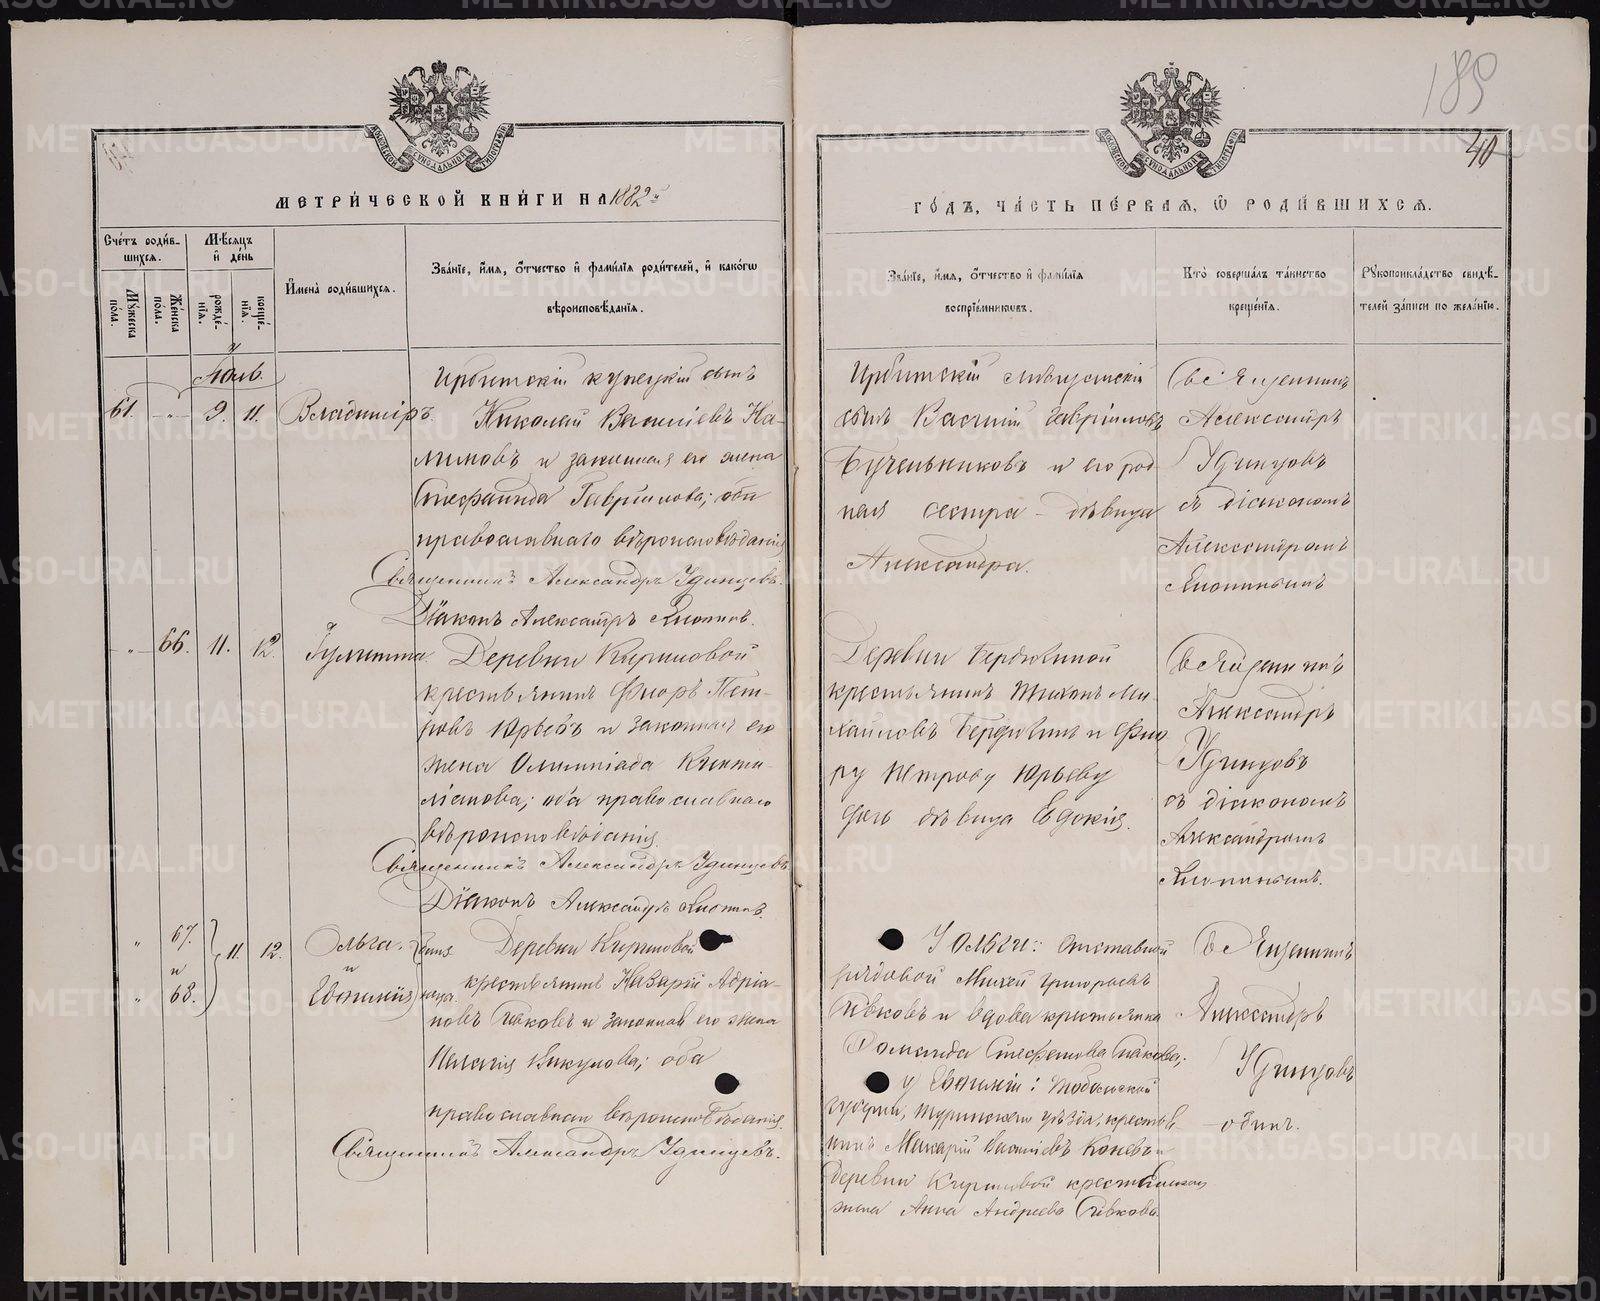 189
40
МЕТРИ́ЧЕСКОЙ КНИ́ГИ НА 1882й
ГО́ДЪ, ЧА́СТЬ ПЕ́РВАЯ, Ѡ РОДИ́ВШИХСЯ.
Сче́тъ роди́в-
шихся.
Мѣ́сяцъ
и́ де́нь
Мꙋ́жеска
по́ла.
Же́нска
по́ла.
рожде́-
нїя.
креще́-
нїя.
И҆мена̀ роди́вшихся.
Зва́нїе, и҆́мя, ѻ҆́тчество и҆ фами́лїя роди́телей, и҆ како́гѡ
вѣроисповѣ́данїя.
Зва́нїе, и҆́мя, ѻ҆́тчество и҆ фами́лїя
воспрїе́мникѡвъ.
Кто̀ соверша́лъ та́инство
креще́нїя.
Рꙋкоприкла́дство свидѣ́-
телей за́писи по жела́нїю.
Іюль.
61. - " - 9. 11. Владиміръ.
Ирбитскій купецкій сынъ
Николай Василіевъ Ка-
лимовъ и законная его жена
Стефанида Гавріилова; оба
православнаго вѣроисповѣданія
Священникъ Александръ Удинцевъ.
Діаконъ Александръ
Ирбитскій
сынъ Василій Гавріиловъ
и его род-
ная сестра - дѣвица
Александра.
Священникъ
Александръ
Удинцовъ
съ діакономъ
Александромъ
- " - 66. 11. 12. Іулитта.
Деревни Кириловой
крестьянинъ Флоръ Пет-
ровъ Юрьевъ и законная его
жена Олимпіада
оба православнаго
вѣроисповѣданія.
Священникъ Александръ Удинцевъ.
Діаконъ Александръ
Деревни Бердюгиной
крестьянинъ Тихонъ Ми-
хайловъ Бердюгинъ и Фло-
ру Петрову Юрьеву
дочь дѣвица Евдокія.
Священникъ
Александръ
Удинцовъ
съ діакономъ
Александромъ
" 67.
и
" 68.
11. 12.
Ольга.
и
Евфимія
близ
неца.
Деревни Кириловой
крестьянинъ Назарій Адріа-
новъ Пѣковъ и законная его жена
Пелагія Викулова; оба
православнаго вѣроисповѣданія.
Священникъ Александръ Удинцевъ.
У Ольги: отставной
рядовой Михей Григорьевъ
и вдова крестьянка
у Евфиміи: Тобольской
губерніи, Туринскаго уѣзда, крестья-
нинъ Макарій Василіевъ Коневъ и
деревни Кириловой крестьянская
жена Анна Андреева
Священникъ
Александръ
Удинцовъ
- одинъ.
METRIKI.GASO-URAL.RU